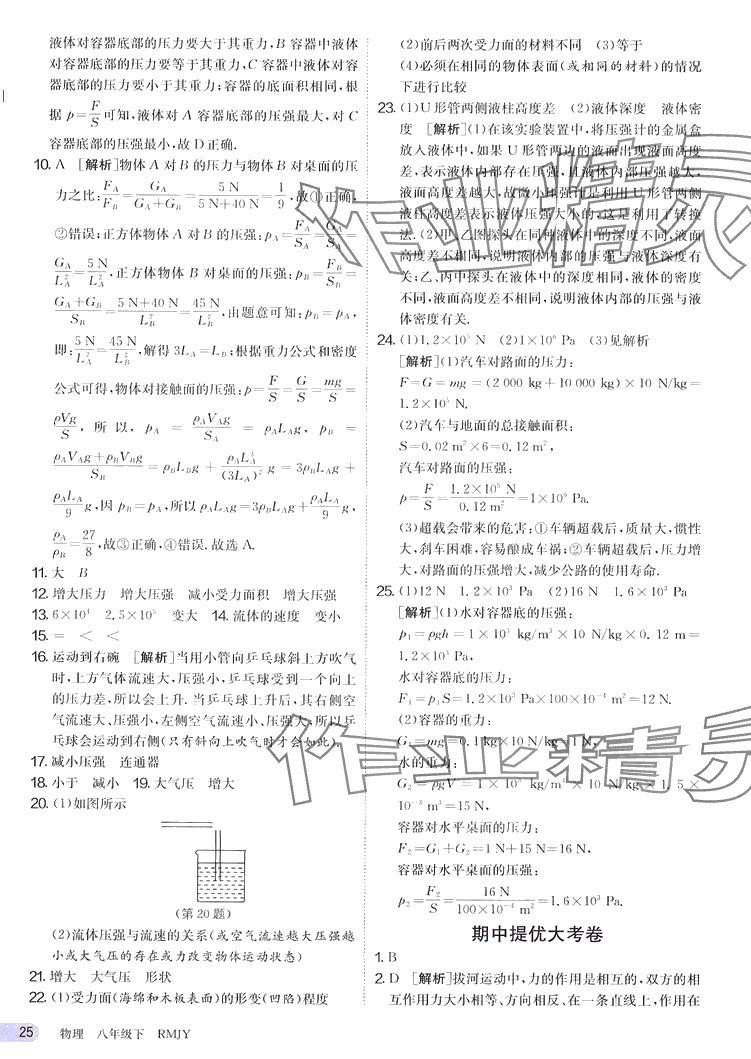 液体对容器底部的压力要大于其重力;B 容器中液体
对容器底部的压力要等于其重力,C 容器中液体对容
器底部的压力要小于其重力;容器的底面积相同,根
据 p=F/S 可知,液体对 A 容器底部的压强最大,对 C
容器底部的压强最小,故 D 正确.
10. A [解析]物体 A 对 B 的压力与物体 B 对桌面的压
力之比:F_A/F_B=G_A/(G_A+G_B)=5 N/(5 N+40 N)=1/9,故①正确,
②错误;正方体物体 A 对 B 的压强:p_A=F_A/S_A=
G_A/L_A²=5 N/L_A²,正方体物体 B 对桌面的压强:p_B=F_B/S_B=
(G_A+G_B)/S_B=(5 N+40 N)/L_B²=45 N/L_B²,由题意可知:p_B=p_A,
即:5 N/L_A²=45 N/L_B²,解得 3L_A=L_B;根据重力公式和密度
公式可得,物体对接触面的压强:p=F/S=G/S=mg/S=
ρVg/S,所以,p_A=ρ_AV_Ag/S_A=ρ_AL_Ag,p_B=
(ρ_AV_Ag+ρ_BV_Bg)/S_B=ρ_BL_Bg+ρ_AL_A³/(3L_A)² g=3ρ_BL_Ag+
ρ_AL_A/9 g,因 p_B=p_A,所以 ρ_AL_Ag=3ρ_BL_Ag+ρ_AL_A/9 g,
ρ_A/ρ_B=27/8,故③正确,④错误.故选 A.
11. 大 B
12. 增大压力 增大压强 减小受力面积 增大压强
13. 6×10⁴ 2.5×10⁵ 变大 14. 流体的速度 变小
15. = < <
16. 运动到右碗 [解析]当用小管向乒乓球斜上方吹气
时,上方气体流速大,压强小,乒乓球受到一个向上
的压力差,所以会上升.当乒乓球上升后,其右侧空
气流速大、压强小,左侧空气流速小、压强大,所以乒
乓球会运动到右侧(只有斜向上吹气时才会如此).
17. 减小压强 连通器
18. 小于 减小 19. 大气压 增大
20. (1)如图所示
(第20题)
(2)流体压强与流速的关系(或空气流或大气压强越
小或大气压的存在或力改变物体运动状态)
21. 增大 大气压 形状
22. (1)受力面(海绵和木板表面)的形变(凹陷)程度
25 物理 八年级下 RMJY
(2)前后两次受力面的材料不同 (3)等于
(4)必须在相同的物体表面(或相同的材料)的情况
下进行比较
23. (1)U形管两侧液柱高度差 (2)液体深度 液体密
度 [解析](1)在该实验装置中,将压强计的金属盒
放入液体中,如果 U 形管两边的液面出现液面高度
差,表示液体内部存在压强,且液体内部压强越大,
高度差越大,故微小压强计是利用 U 形管两侧
液柱高度差表示液体压强大小的,这是利用了转换
法.(2)甲、乙图探头在同种液体中的深度不同,液面
高度差不相同,说明液体内部的压强与液体深度有
关;乙、丙中探头在液体中的深度相同,液体的密度
不同,液面高度差不相同,说明液体内部的压强与液
体密度有关.
24. (1)1.2×10⁵ N (2)1×10⁶ Pa (3)见解析
[解析](1)汽车对路面的压力:
F=G=mg=(2 000 kg+10 000 kg)×10 N/kg=
1.2×10⁵ N.
(2)汽车与地面的总接触面积:
S=0.02 m²×6=0.12 m²,
汽车对路面的压强:
p=F/S=1.2×10⁵ N/0.12 m²=1×10⁶ Pa.
(3)超载会带来的危害:①车辆超载后,质量大,惯性
大,刹车困难,容易酿成车祸;②车辆超载后,压力增
大,对路面的压强增大,减少公路的使用寿命.
25. (1)12 N 1.2×10³ Pa (2)16 N 1.6×10³ Pa
[解析](1)水对容器底的压强:
p₁=ρgh=1×10³ kg/m³×10 N/kg×0.12 m=
1.2×10³ Pa,
水对容器底的压力:
F₁=p₁S=1.2×10³ Pa×100×10⁻⁴ m²=12 N.
(2)容器的重力:
G₁=mg=0.1 kg×10 N/kg=1 N,
水的重力:
G₂=ρgV=1×10³ kg/m³×10 N/kg×1.5×
10⁻³ m³=15 N,
容器对水平桌面的压力:
F₂=G₁+G₂=1 N+15 N=16 N,
容器对水平桌面的压强:
p₂=F₂/S=16 N/(100×10⁻⁴ m²)=1.6×10³ Pa.
期中提优大考卷
1. B
2. D [解析]拔河运动中,力的作用是相互的,双方的相
互作用力大小相等、方向相反、在一条直线上,作用在
作业精灵
作业精灵